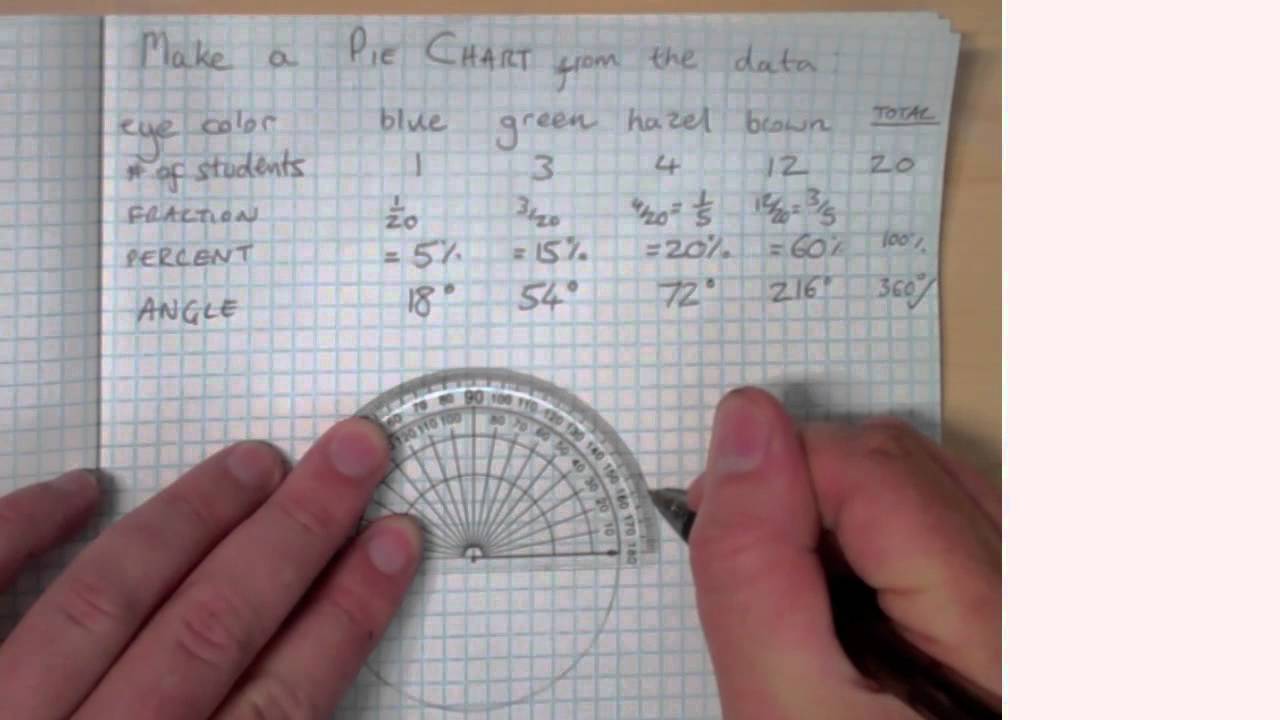 Make a PIE CHART from the data:
eye color blue green hazel brown TOTAL
# of students 1 3 4 12 20
FRACTION 1/20 3/20 4/20 = 1/5 12/20 = 3/5
PERCENT = 5% = 15% = 20% = 60% 100%
ANGLE 18° 54° 72° 216° 360°
60 70 80 90 100 110 120 130 140 150 160 170 180
120 110 100 80 70 60 50 40 30 20 10 0